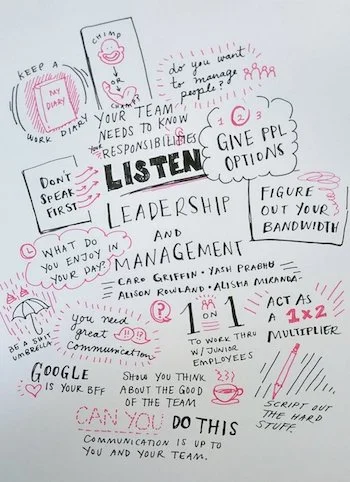 CHIMP
OR
CHAMP?
KEEP A
MY
DIARY
WORK DIARY
do you want
to manage
people?
YOUR TEAM
NEEDS TO KNOW
YOUR
RESPONSIBILITIES
1 2 3
GIVE PPL
OPTIONS
DON'T
SPEAK
FIRST
LISTEN
LEADERSHIP
AND
MANAGEMENT
CARO GRIFFIN · YASH PRABHU
ALISON ROWLAND · ALISHA MIRANDA
FIGURE
OUT YOUR
BANDWIDTH
WHAT DO
YOU ENJOY IN
YOUR DAY?
BE A SHIT
UMBRELLA
you need
great
Communication
?
1 ON 1
TO WORK THRU
W/ JUNIOR
EMPLOYEES
ACT AS
A 1x2
MULTIPLIER
GOOGLE
IS YOUR BFF
SHOW YOU THINK
ABOUT THE GOOD
OF THE TEAM
SCRIPT OUT
THE HARD
STUFF.
CAN YOU DO THIS
COMMUNICATION IS UP TO
YOU AND YOUR TEAM.